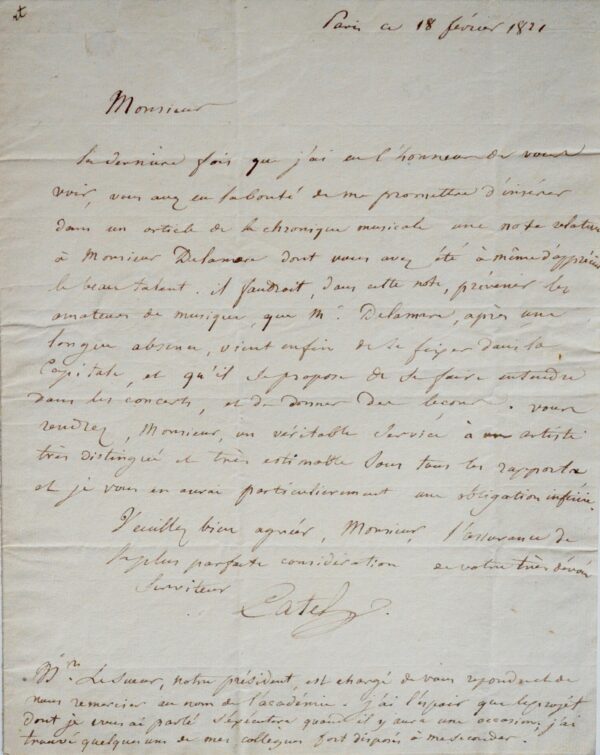 Paris ce 18 février 1821
Monsieur
la dernière fois que j'ai eu l'honneur de vous
voir, vous avez eu la bonté de me promettre d'insérer
dans un article de la chronique musicale une note relative
à Monsieur Delamare dont vous avez été à même d'apprécier
le beau talent. il faudroit, dans cette note, prévenir les
amateurs de musique, que Mr. Delamare, après une
longue absence, vient enfin de se fixer dans la
Capitale, et qu'il se propose de se faire entendre
dans les concerts, et de donner des leçons. vous
rendrez, Monsieur, un véritable service à un artiste
très distingué et très estimable sous tous les rapports
et je vous en aurai particulierement une obligation infinie.
Veuillez bien agréer, Monsieur, l'assurance de
la plus parfaite considération de votre très dévoué
Serviteur
Catel
Mr. Lesueur, notre président, est chargé de vous répondre et de
vous remercier au nom de l'académie. j'ai l'espoir que le projet
dont je vous ai parlé s'exécutera quand il y aura une occasion, j'ai
trouvé quelques uns de mes collegues fort disposés à me seconder.